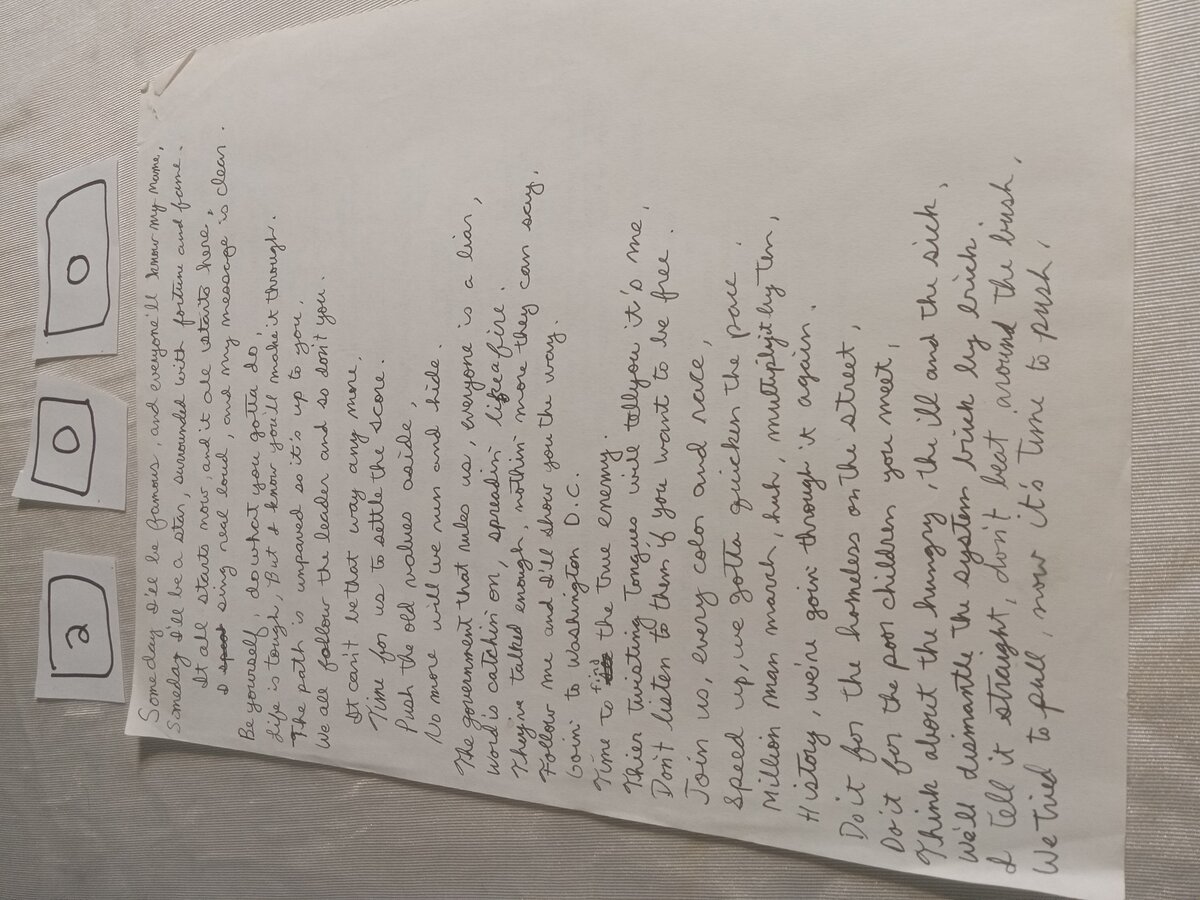 2 0 0
Someday I'll be famous, and everyone'll know my name,
Someday I'll be a star, surrounded with fortune and fame.
It all starts now, and it all starts here,
I sing real loud, and my message is clear.
Be yourself, do what you gotta do,
Life is tough, But I know you'll make it through.
The path is unpaved so it's up to you.
We all follow the leader and so don't you.
It can't be that way any more.
Time for us to settle the score.
Push the old values aside,
No more will we run and hide.
The government that rules us, everyone is a liar,
Word is catchin on, spreadin like a fire.
They've talked enough, nothin more they can say,
Follow me and I'll show you the way.
Goin to Washington D.C.
Time to find the true enemy.
Thier twisting tongues will tell you it's me
Don't listen to them if you want to be free.
Join us, every color and race,
Speed up, we gotta quicken the pace.
Million man march, huh, multiply it by ten,
History, we're goin through it again.
Do it for the homeless on the street,
Do it for the poor children you meet,
Think about the hungry, the ill and the sick,
We'll dismantle the system brick by brick.
I tell it straight, don't beat around the bush,
We tried to pull, now it's time to push.